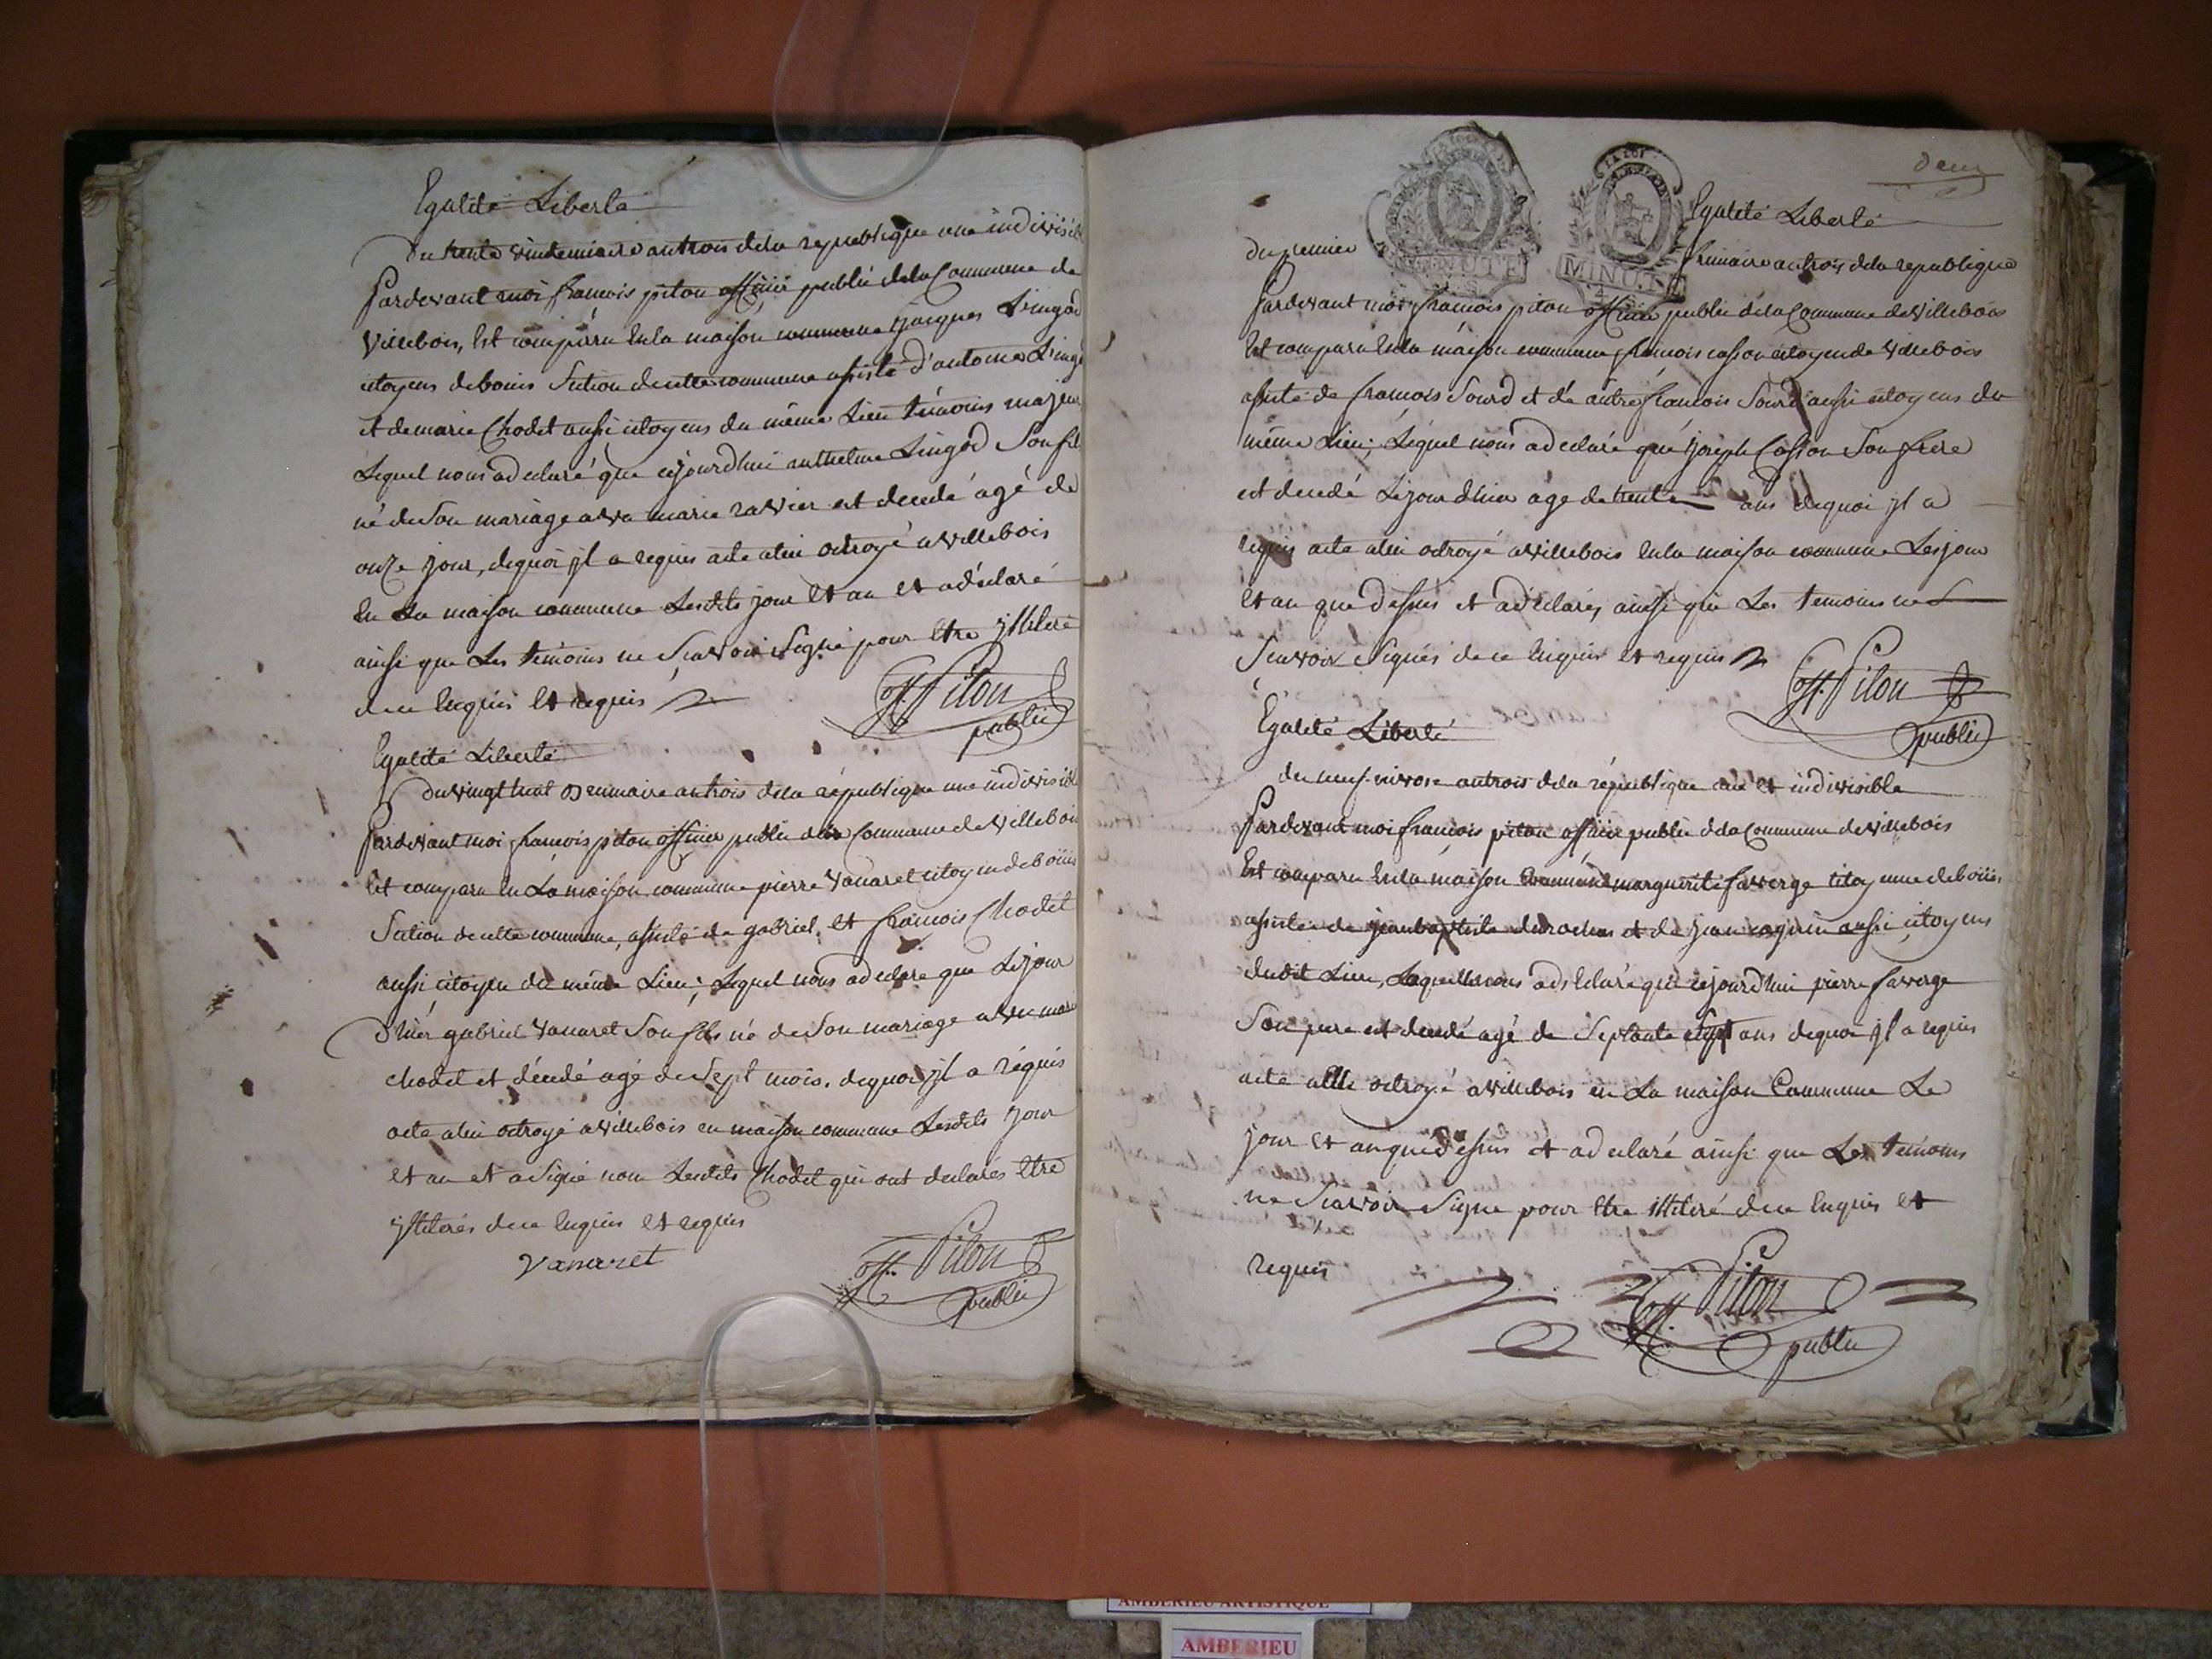 Egalité Liberté
Du trente vindemiaire an trois dela republique une indivisible
Pardevant moi francois piton officier public dela Commune de
Villebois, Est comparu En la maison commune jacques Lingod
citoyens de bouis Section de cette commune assisté d'antoine Linge
et de marie Chodet aussi citoyens du même Lieu témoins majeur
Lequel nous a declaré que cejourdhui anthelme Lingod Son fils
né de Son mariage avec marie ravier est decedé agé de
onze jour, dequoi jl a requis acte alui octroyé a villebois
En La maison commune Lesdits jour Et an Et a déclaré
ainsi que Les témoins ne Scavoir Signé pour Etre jlliteré
de ce Enquis Et requis
Piton off. public
Egalité Liberté
Du vingt huit Brumaire an trois dela république une indivisible
Pardevant moi francois piton officier public dela Commune de Villebois
Est comparu En La maison commune pierre Vanaret citoyen de bouis
Section de cette commune, assisté de gabriel, et francois Chodet
aussi citoyen du même Lieu; Lequel nous a declaré que Lejour
d'hier gabriel Vanaret Son fils né de Son mariage avec marie
chodet est décedé agé de Sept mois, dequoi jl a réquis
acte alui octroyé a villebois en maison commune Lesdits jour
et an et a Signé non Lesdits Chodet qui ont declarés Etre
jlliterés de ce Enquis Et requis
Vanaret
off. Piton public
deux
LA LOI
MINUTE
MINUTE
Egalité Liberté
du premier frimaire an trois dela republique
Pardevant moi francois piton officier public dela Commune de Villebois
Est comparu En la maison commune francois casson citoyen de Villebois
assisté de francois Sourd et de autre francois Sourd aussi citoyens du
même Lieu; Lequel nous a declaré que joseph Casson Son frere
est decedé Lejour d'hier agé de trente ans dequoi jl a
requis acte alui octroyé a villebois En la maison commune Les jour
Et an que dessus et a déclarés, ainsi que Les temoins ne
Scavoir Signés de ce Enquis Et requis
off. Piton public
Egalité Liberté
du neuf nivose an trois dela république une Et indivisible
Pardevant moi francois piton officier public dela Commune de Villebois
Est comparu En la maison Commune marguerite faverge citoyenne de bouis
assistée de jean baptiste durochas et de jean coquin aussi citoyens
dudit Lieu, Laquelle nous a déclaré que cejourd'hui pierre faverge
Son pere est decedé agé de Septante Sept ans dequoi jl a requis
acte a Elle octroyé a villebois en La maison Commune Le
jour Et an que dessus et a declaré ainsi que Les temoins
ne Scavoir Signe pour Etre illiteré de ce Enquis Et
requis
off. Piton public
AMBERIEU ARTISTIQUE
AMBERIEU